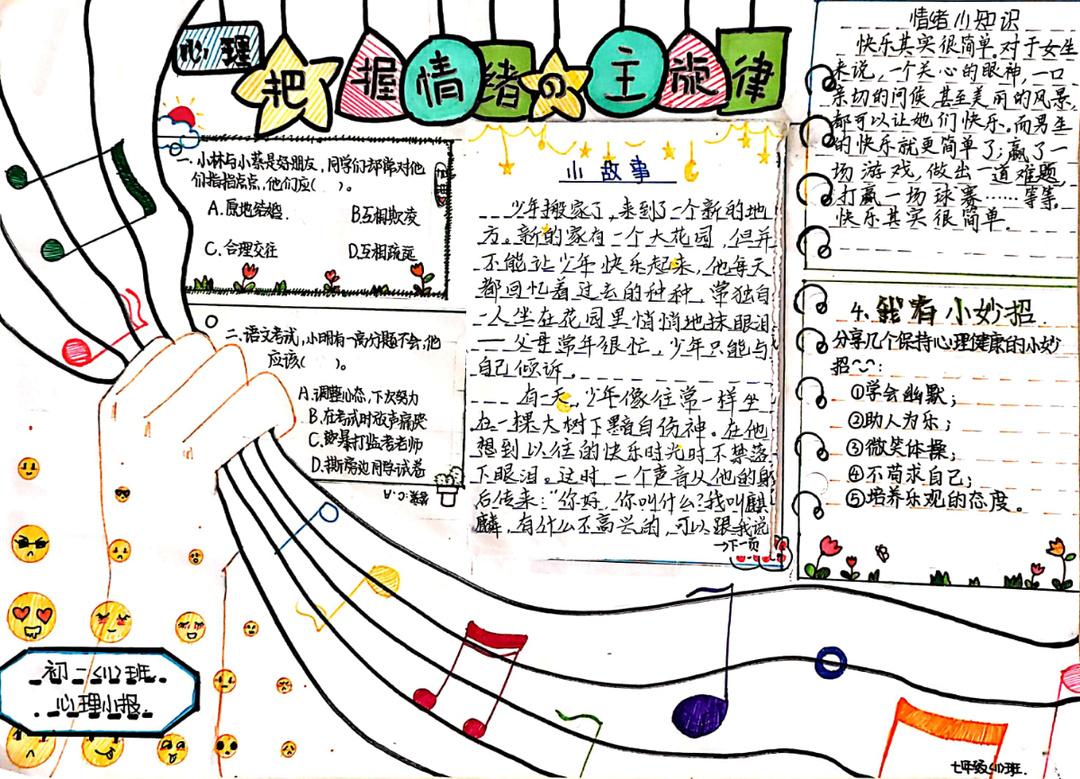 心理
把握情绪の主旋律
一、小林与小蔡是好朋友,同学们却常对他
们指指点点,他们应(    )。
A.原地结婚.
B互相欺凌
C.合理交往
D.互相疏远
二、语文考试,小明有一高分题不会,他
应该(    )。
A.调整心态,下次努力
B.在考试时放声痛哭
C.殴暴打监考老师
D.撕旁边同学试卷
答案:C.A
小故事
少年搬家了,来到了一个新的地
方。新的家有一个大花园,但并
不能让少年快乐起来,他每天
都回忆着过去的种种,常独自
一人坐在花园里悄悄地抹眼泪
——父母常年很忙,少年只能与
自己倾诉。
有一天,少年像往常一样坐
在一棵大树下黯自伤神。在他
想到以往的快乐时光时不禁落
下眼泪。这时,一个声音从他的身
后传来:“你好,你叫什么?我叫麒
麟,有什么不高兴的,可以跟我说
→下一页
情绪小知识
快乐其实很简单,对于女生
来说,一个关心的眼神,一口
亲切的问候,甚至美丽的风景,
都可以让她们快乐。而男生
的快乐就更简单了;赢了一
场游戏,做出一道难题,
打赢一场球赛……等等。
快乐其实很简单.
4.我有小妙招.
分享几个保持心理健康的小妙
招~~:
①学会幽默;
②助人为乐;
③微笑体操;
④不苟求自己;
⑤培养乐观的态度。
初一(11)班
心理小报.
七年级(11)班.